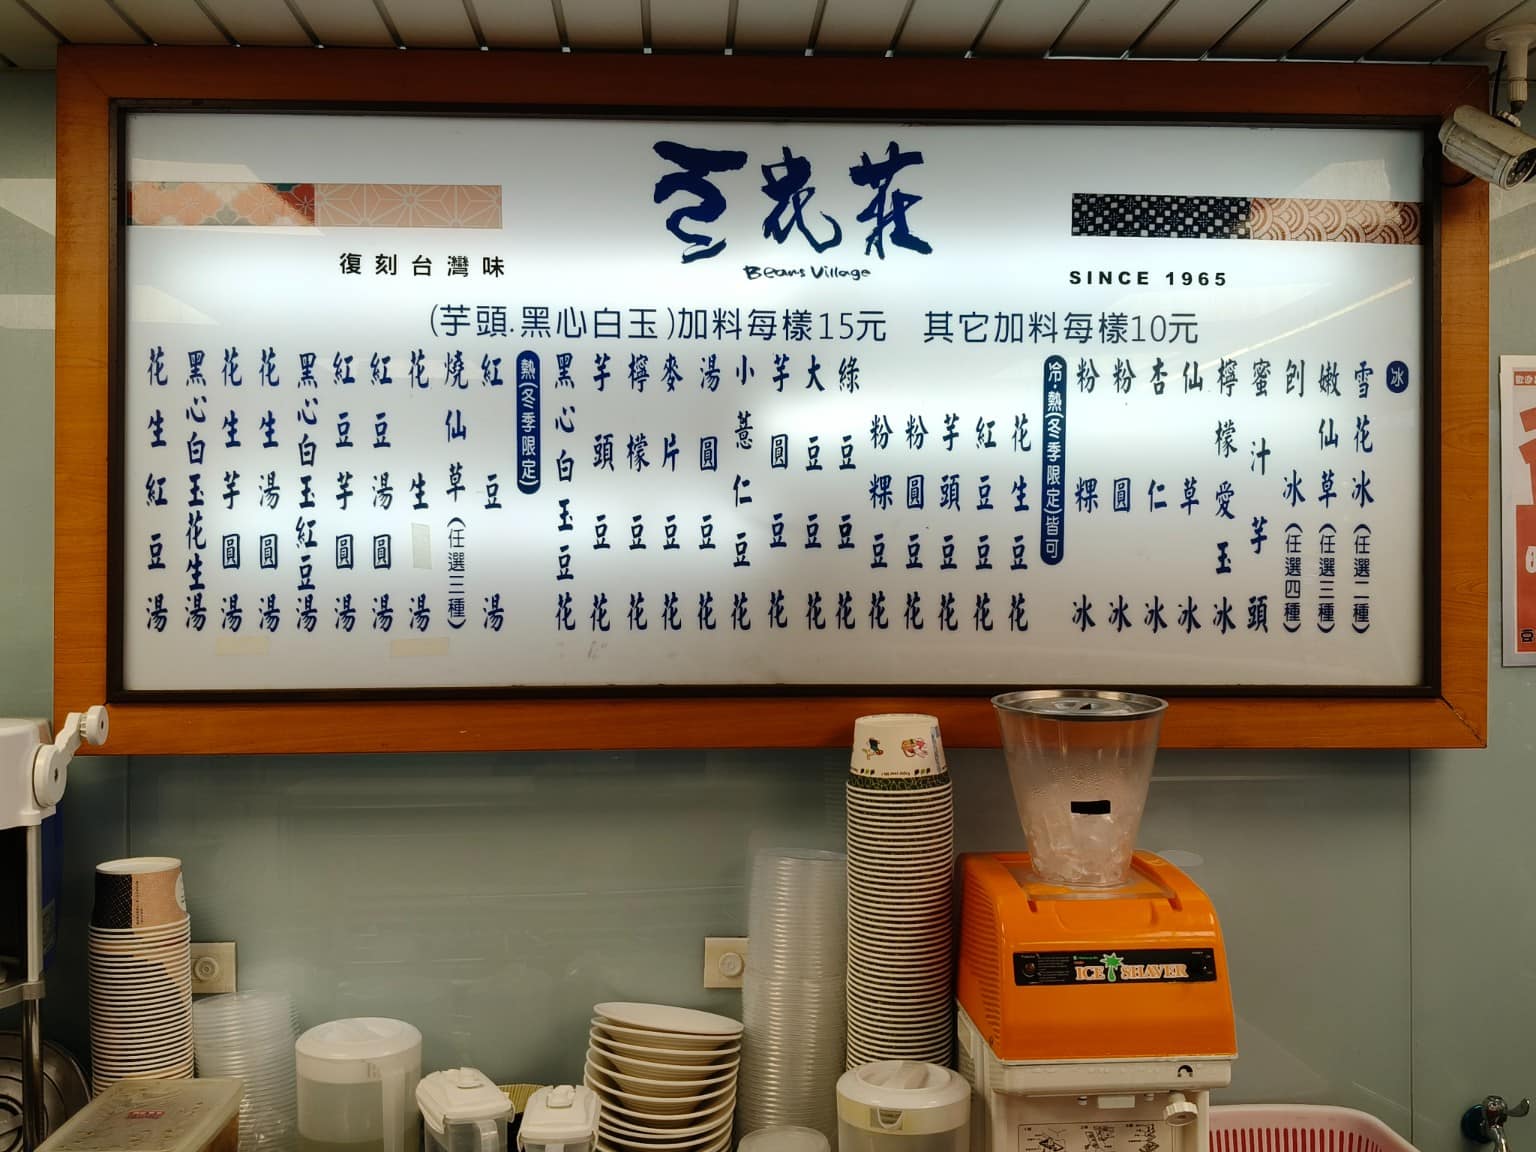 豆花莊
Beans Village
復刻台灣味
SINCE 1965
(芋頭.黑心白玉)加料每樣15元 其它加料每樣10元
冰
雪花冰(任選二種)
嫩仙草(任選三種)
刨冰(任選四種)
蜜汁芋頭
檸檬愛玉冰
仙草冰
杏仁冰
粉圓冰
粉粿冰
冷.熱(冬季限定)皆可
花生豆花
紅豆豆花
芋頭豆花
粉圓豆花
粉粿豆花
綠豆豆花
大豆豆花
芋圓豆花
小薏仁豆花
湯圓豆花
麥片豆花
檸檬豆花
芋頭豆花
黑心白玉豆花
熱(冬季限定)
紅豆湯
燒仙草(任選三種)
花生湯
紅豆湯圓湯
紅豆芋圓湯
黑心白玉紅豆湯
花生湯圓湯
花生芋圓湯
黑心白玉花生湯
花生紅豆湯
ICE SHAVER